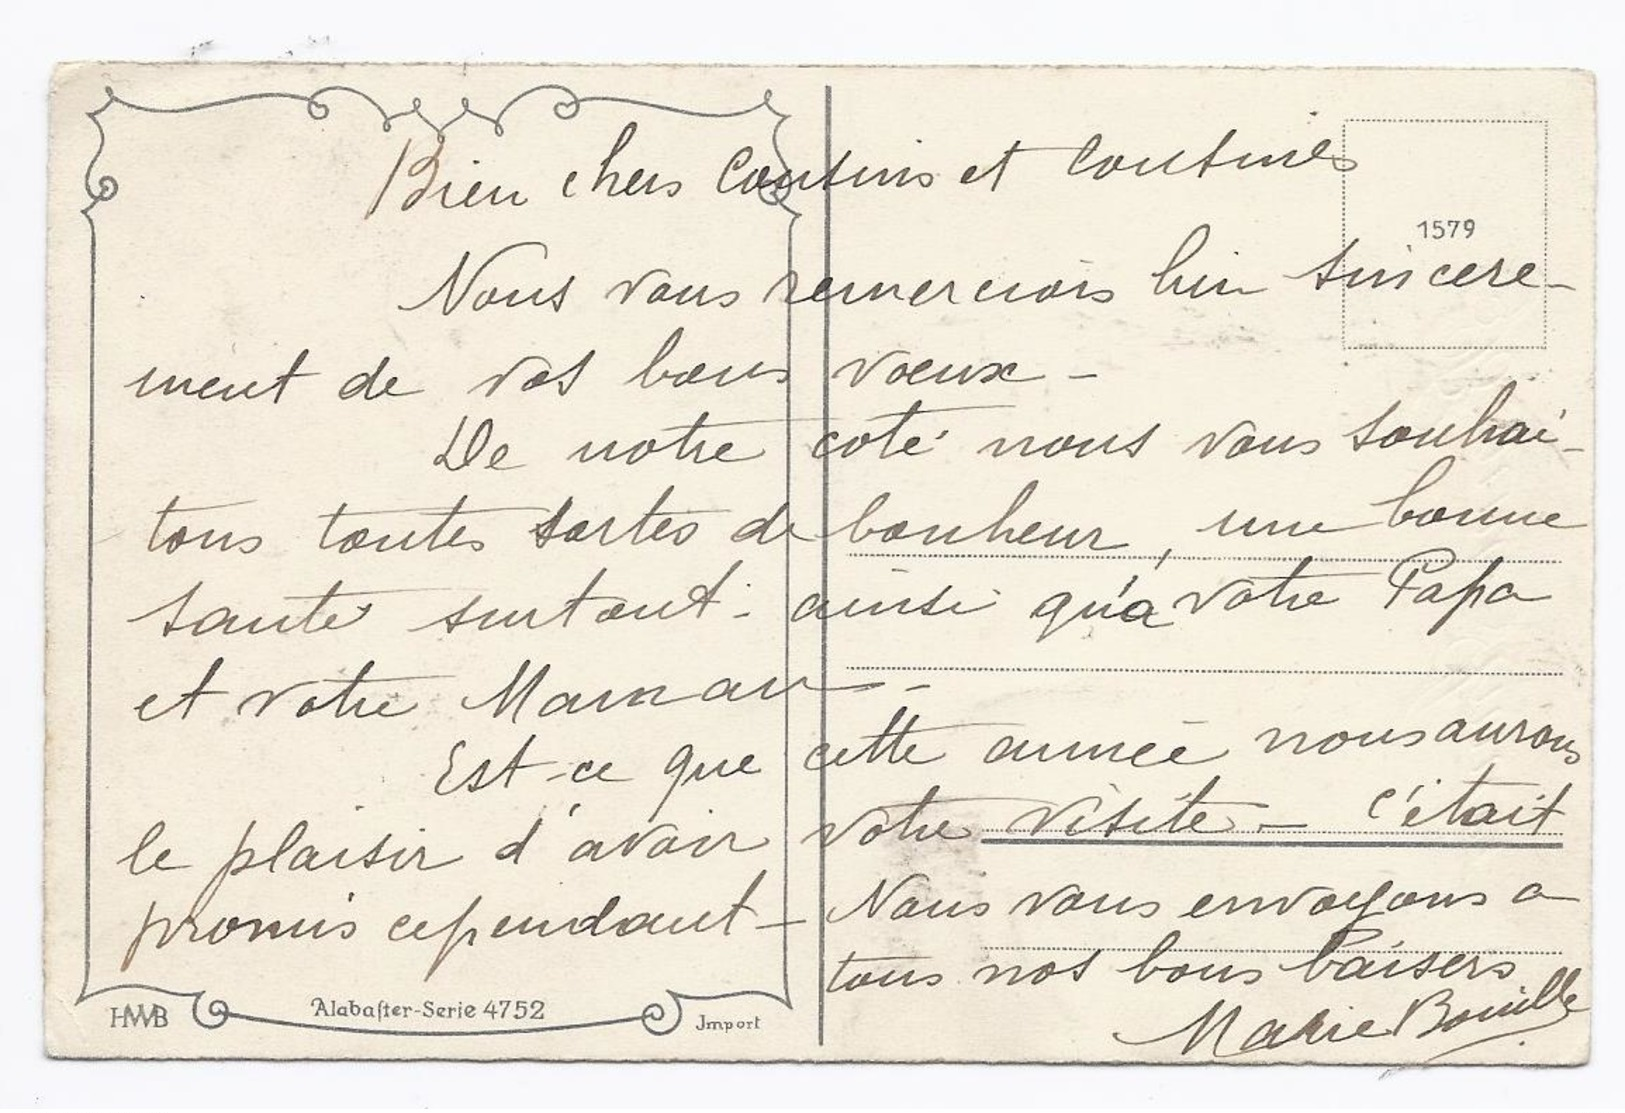 Bien chers Cousins et Cousines
1579
Nous vous remercions bien sincere-
ment de vos bons voeux -
De notre coté nous vous souhai-
tons toutes sortes de bonheur, une bonne
santé surtout. ainsi qu'a votre Papa
et votre Maman -
Est-ce que cette année nous aurons
le plaisir d'avoir votre visite - C'était
promis cependant - Nous vous envoyons a
tous nos bons baisers
Marie Bouille
HWB Alabaster-Serie 4752 Jmport